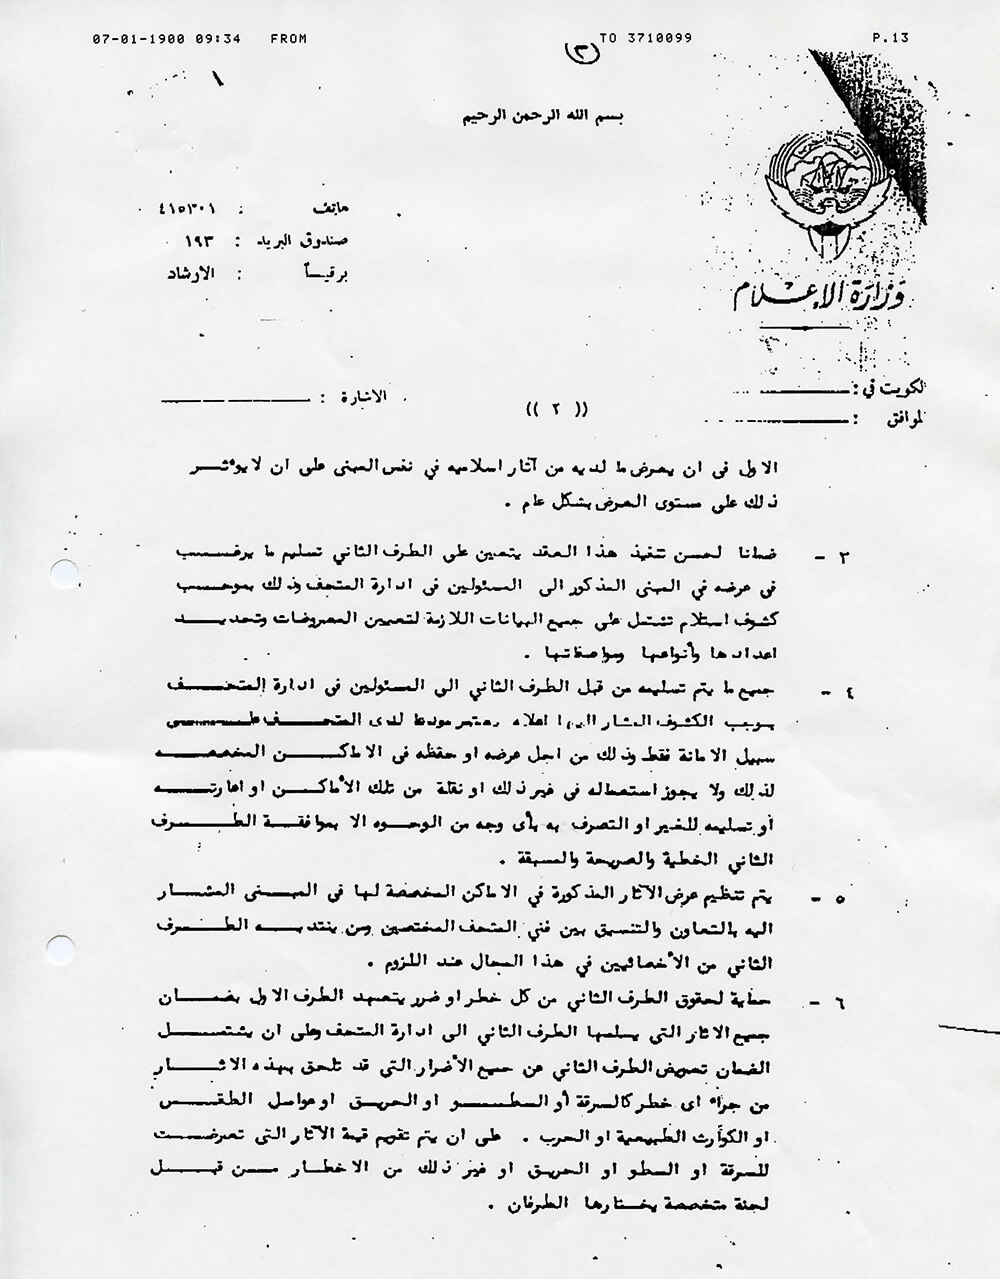 07-01-1900 09:34 FROM TO 3710099 P.13
(٣)
بسم الله الرحمن الرحيم
هاتف : ٤١٥٣٠١
صندوق البريد : ١٩٣
برقيـاً : الارشاد
وزارة الإعلام
لكويت في :
لموافق :
(( ٢ ))
الاشارة :
الاول فى ان يعرض ما لديه من آثار اسلاميه في نفس المبنى على ان لا يؤثـر
ذلك على مستوى العرض بشكل عام .
٣ - ضمانا لحسن تنفيذ هذا العقد يتعين على الطرف الثاني تسليم ما يرغـب
فى عرضه في المبنى المذكور الى المسئولين فى ادارة المتحف وذلك بموجـب
كشوف استلام تشتمل على جميع البيانات اللازمة لتعيين المعروضات وتحديـد
اعدادها وأنواعها ومواصفاتها .
٤ - جميع ما يتم تسليمه من قبل الطرف الثاني الى المسئولين فى ادارة المتحـف
بموجب الكشوف المشار اليها اعلاه يعتبر مودعا لدى المتحـف علـى
سبيل الامانة فقط وذلك من اجل عرضه او حفظه فى الاماكـن المخصصه
لذلك ولا يجوز استعماله في غير ذلك او نقلة من تلك الأماكـن او اعارتـه
أو تسليمه للغير او التصرف به بأى وجه من الوجوه الا بموافقـة الطـرف
الثاني الخطية والصريحة والمسبقة .
٥ - يتم تنظيم عرض الآثار المذكورة في الاماكن المخصصة لها فى المبـنى المشـار
اليه بالتعاون والتنسيق بين فني المتحف المختصين ومن ينتدبـه الطـرف
الثاني من الأخصائيين في هذا المجال عند اللزوم .
٦ - حماية لحقوق الطرف الثاني من كل خطر او ضرر يتعهد الطرف الاول بضمـان
جميع الاثار التي يسلمها الطرف الثاني الى ادارة المتحف وعلى ان يشتمـل
الضمان تعويض الطرف الثاني عن جميع الأضرار التى قد تلحق بهذه الاثـار
من جراء اى خطر كالسرقة أو السطـو او الحريق او عوامل الطقـس
او الكوارث الطبيعية او الحرب . على ان يتم تقويم قيمة الآثار التى تعرضـت
للسرقة او السطو او الحريق او غير ذلك من الاخطار مـن قبـل
لجنة متخصصة يختارها الطرفان .